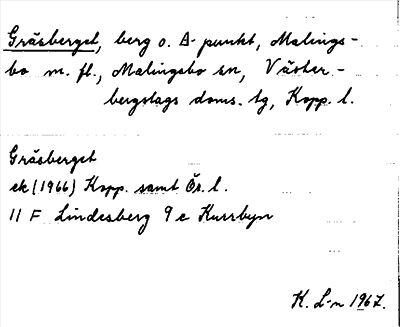 Gräsberget, berg o. A-punkt, Malings-
bo m. fl., Malingsbo sn, Väster-
bergslags doms. tg, Kopp. l.
Gräsberget
ek (1966) Kopp. samt Ör. l.
11 F Lindesberg 9 e Kurrbyn
K. L-n 1967.